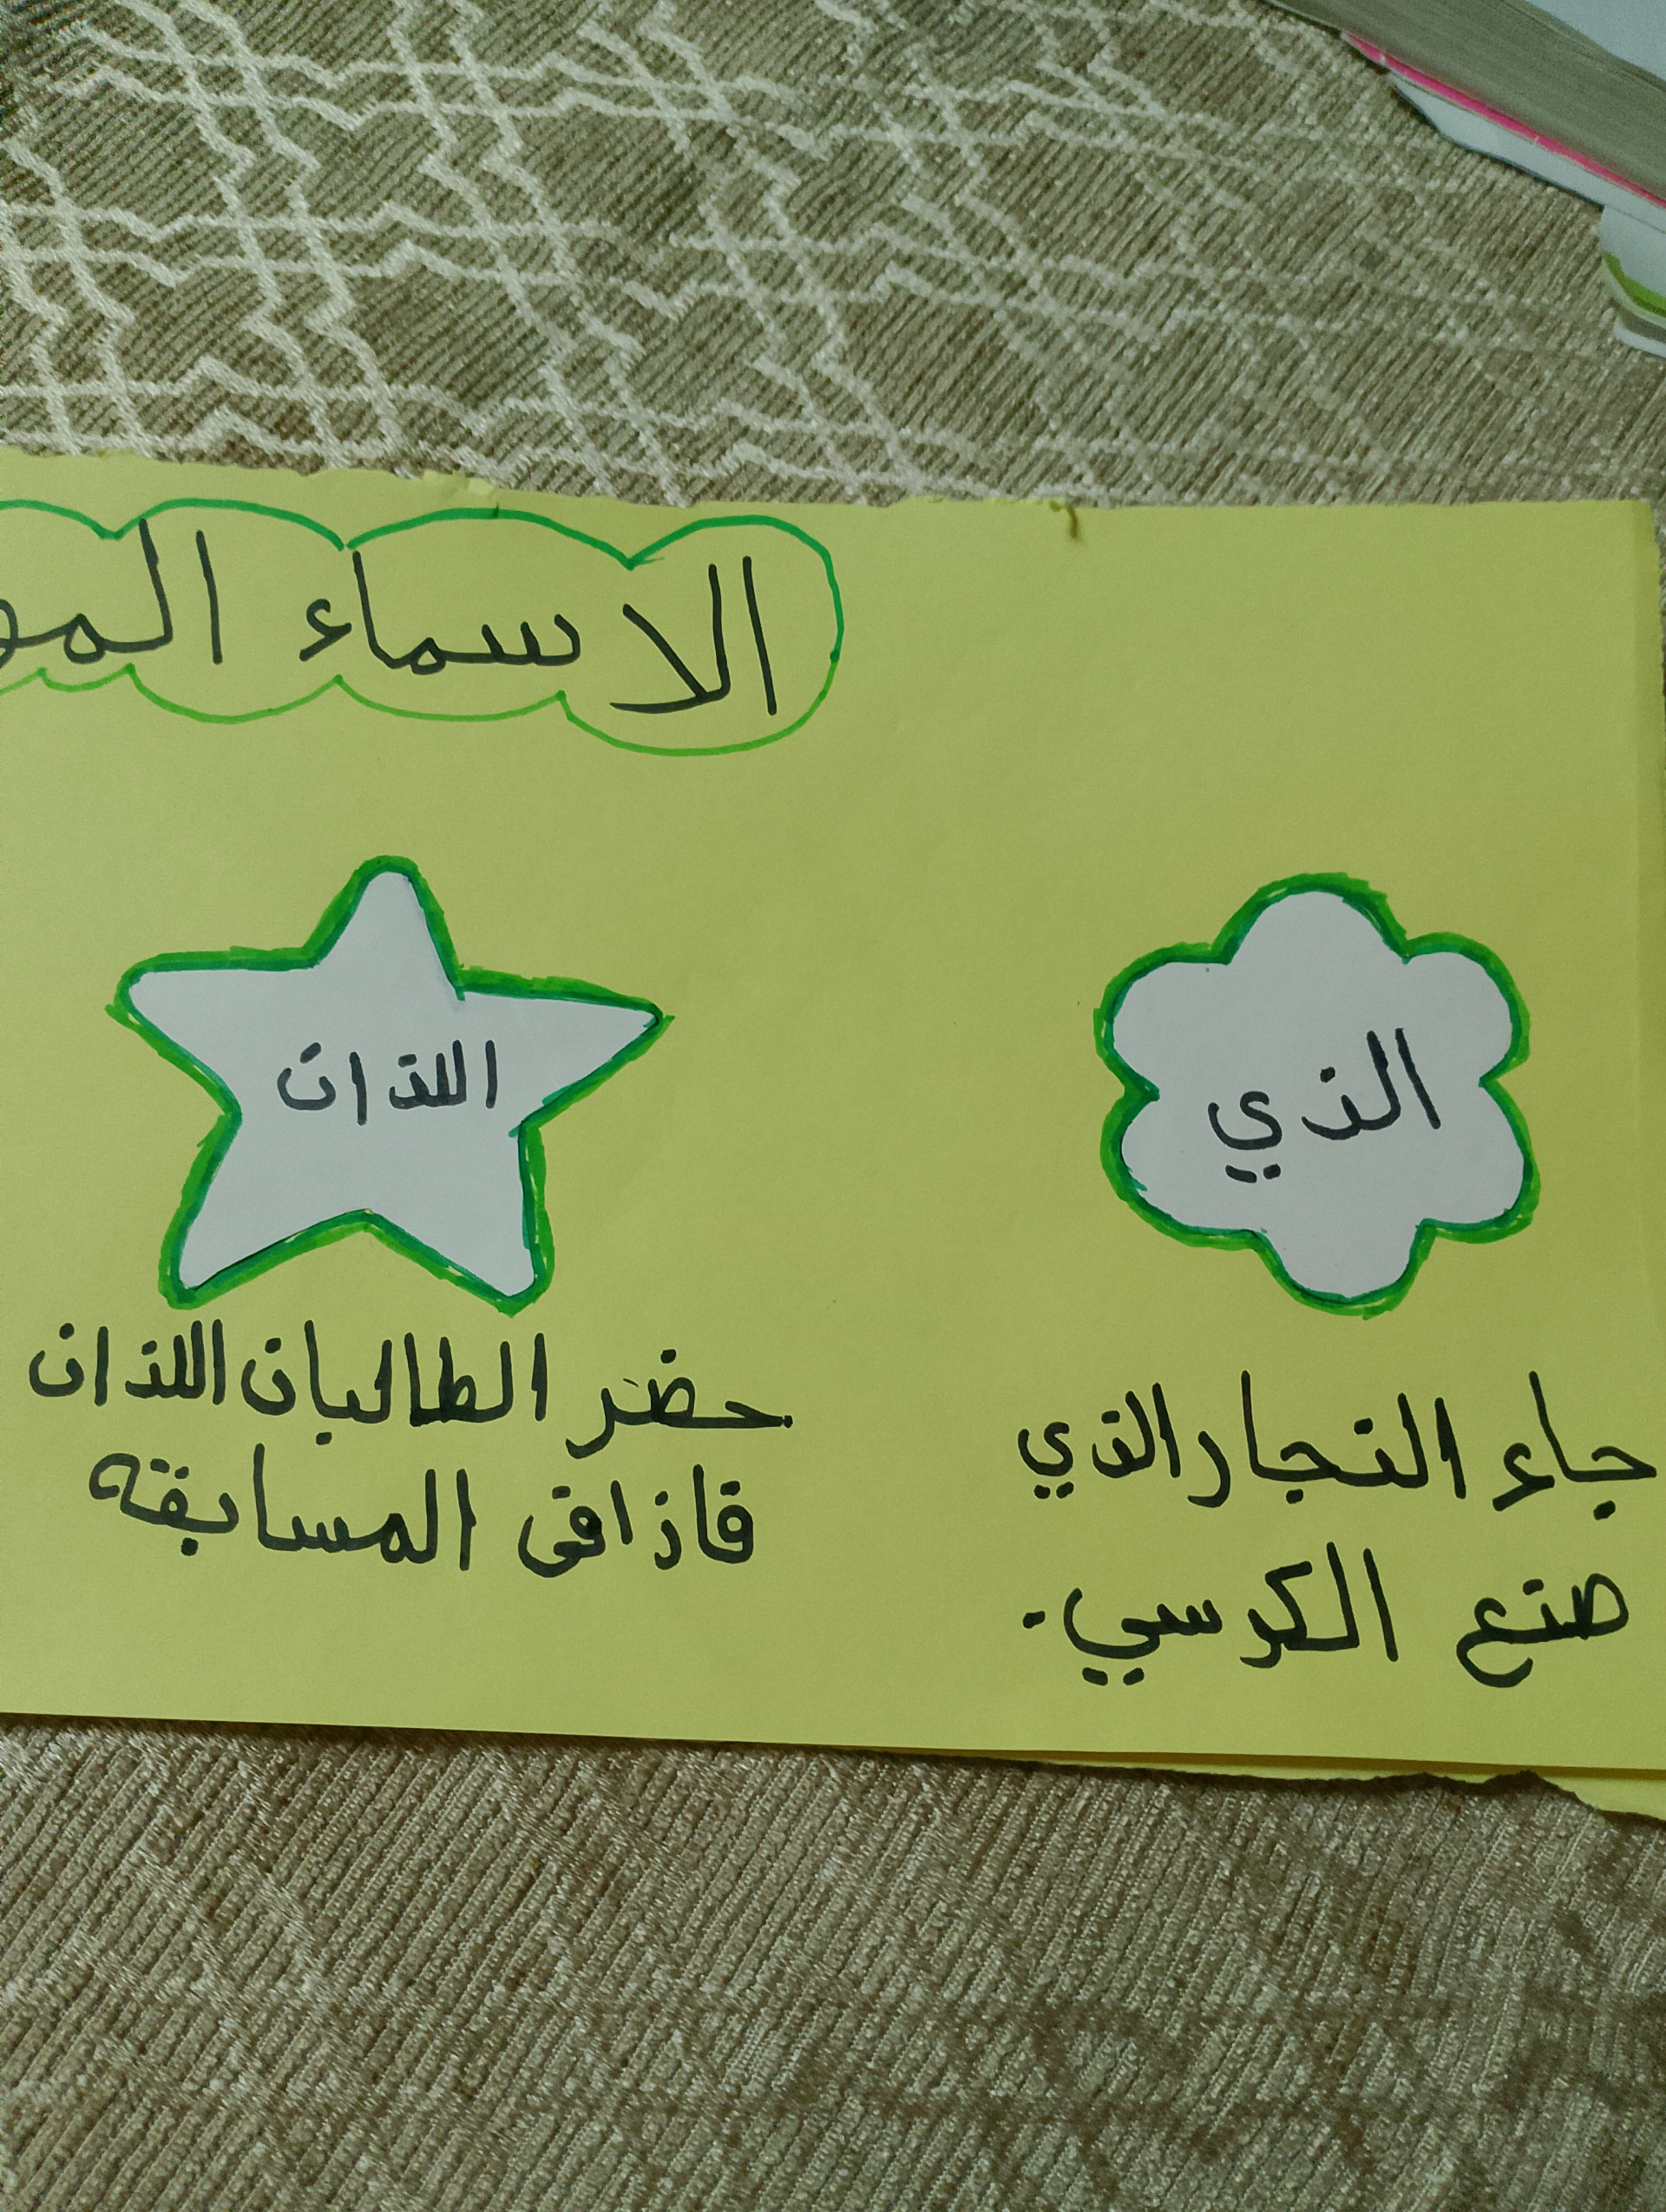 الاسماء المو
الذي
جاء النجار الذي
صنع الكرسي.
اللذان
حضر الطالبان اللذان
فازا فى المسابقه